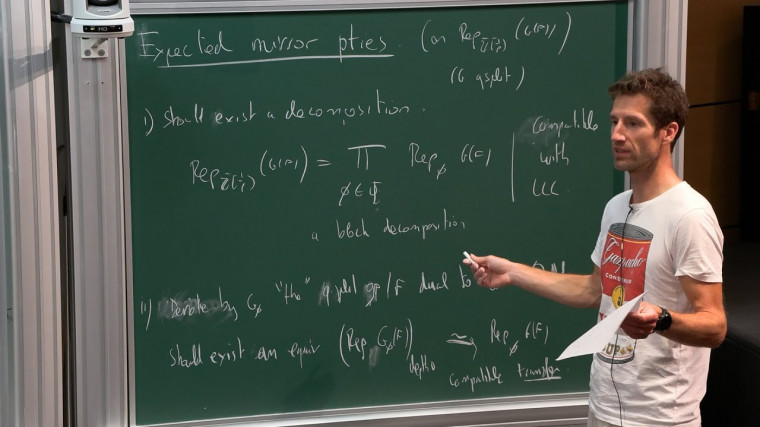 Expected mirror pties. (on Rep (G(F))
(G qsplit)
i) Should exist a decomposition.
Rep (G(F)) = ∏ Rep_ϕ G(F)
ϕ ∈ Φ
compatible
with
LLC
a block decomposition
ii) Denote by G_ϕ "the" qsplit gp/F dual to
should exist an equiv (Rep G_ϕ(F))depth0 ≃ Rep_ϕ G(F)
compatible transfer
Gazpacho
SOUP